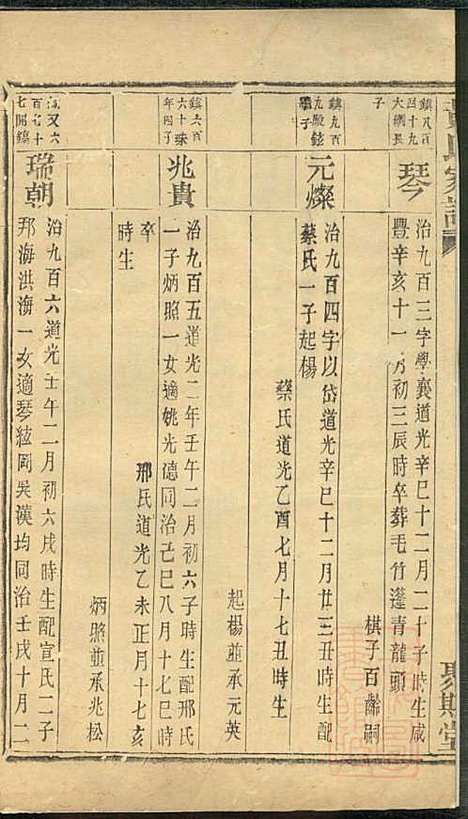 氏家譜
聚斯堂
鎮八百
四十九
大綱長
子
琴
治九百三字學襄道光辛巳十二月二十子時生咸
豐辛亥十一月初三辰時卒葬毛竹蓬青龍頭
棋子百齡嗣
鎮九百
九殿鉉
子
元燦
治九百四字以岱道光辛巳十二月廿三丑時生配
蔡氏一子起楊
蔡氏道光乙酉七月十七丑時生
起楊並承元英
鎮六百
六十
年四子
兆貴
治九百五道光二年壬午二月初六子時生配邢氏
一子炳照一女適姚光德同治己巳八月十七巳時
卒
邢氏道光乙未正月十七亥
時生
炳照並承兆松
又六
百七十
七開鎮
瑞朝
治九百六道光壬午二月初六戌時生配宣氏二子
邦海洪海一女適琴絃岡吳漢均同治壬戌十月二